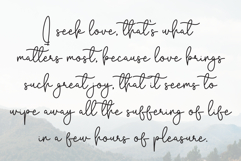 I seek love, that's what
matters most, because love brings
such great joy, that it seems to
wipe away all the suffering of life
in a few hours of pleasure.